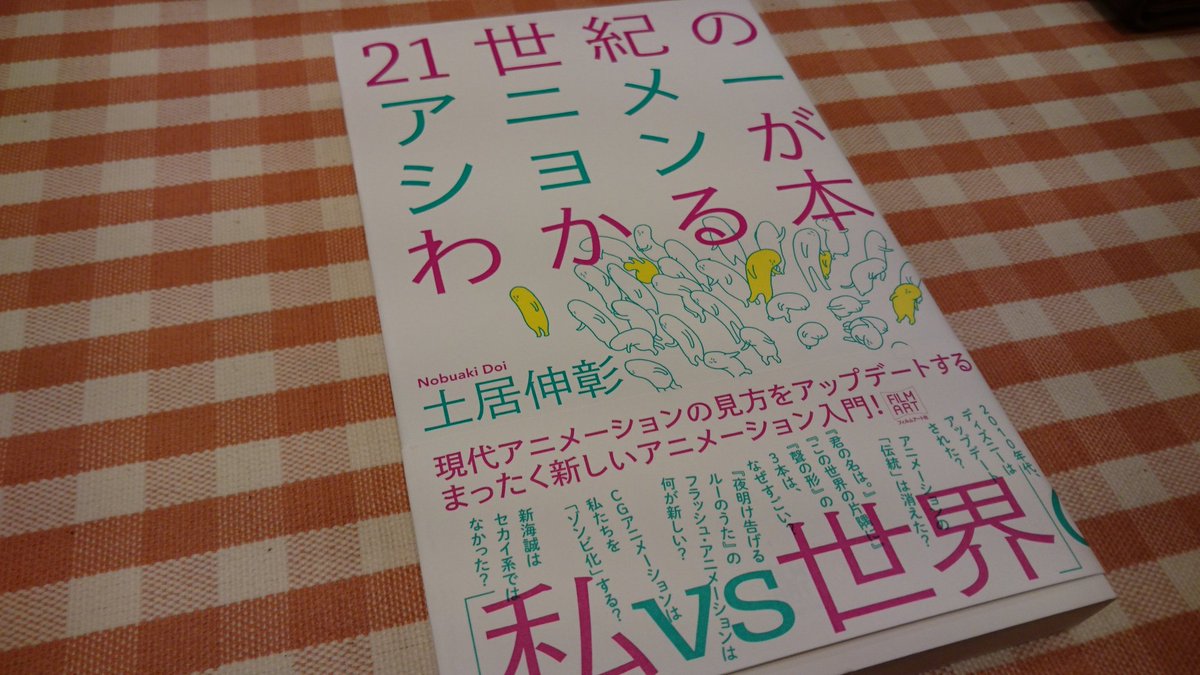 21世紀の
アニメー
ションが
わかる本
Nobuaki Doi
土居伸彰
現代アニメーションの見方をアップデートする
まったく新しいアニメーション入門!
FILM
ART
フィルムアート社
2010年代、
ディズニーは
アップデート
された?
アニメーションの
「伝統」は消えた?
『君の名は。』
『この世界の片隅に』
『聲の形』の
3本は、
なぜすごい?
『夜明け告げる
ルーのうた』の
フラッシュ・アニメーションは
何が新しい?
CGアニメーションは
私たちを
「ゾンビ化」する?
新海誠は
セカイ系では
なかった?
「私vs世界」